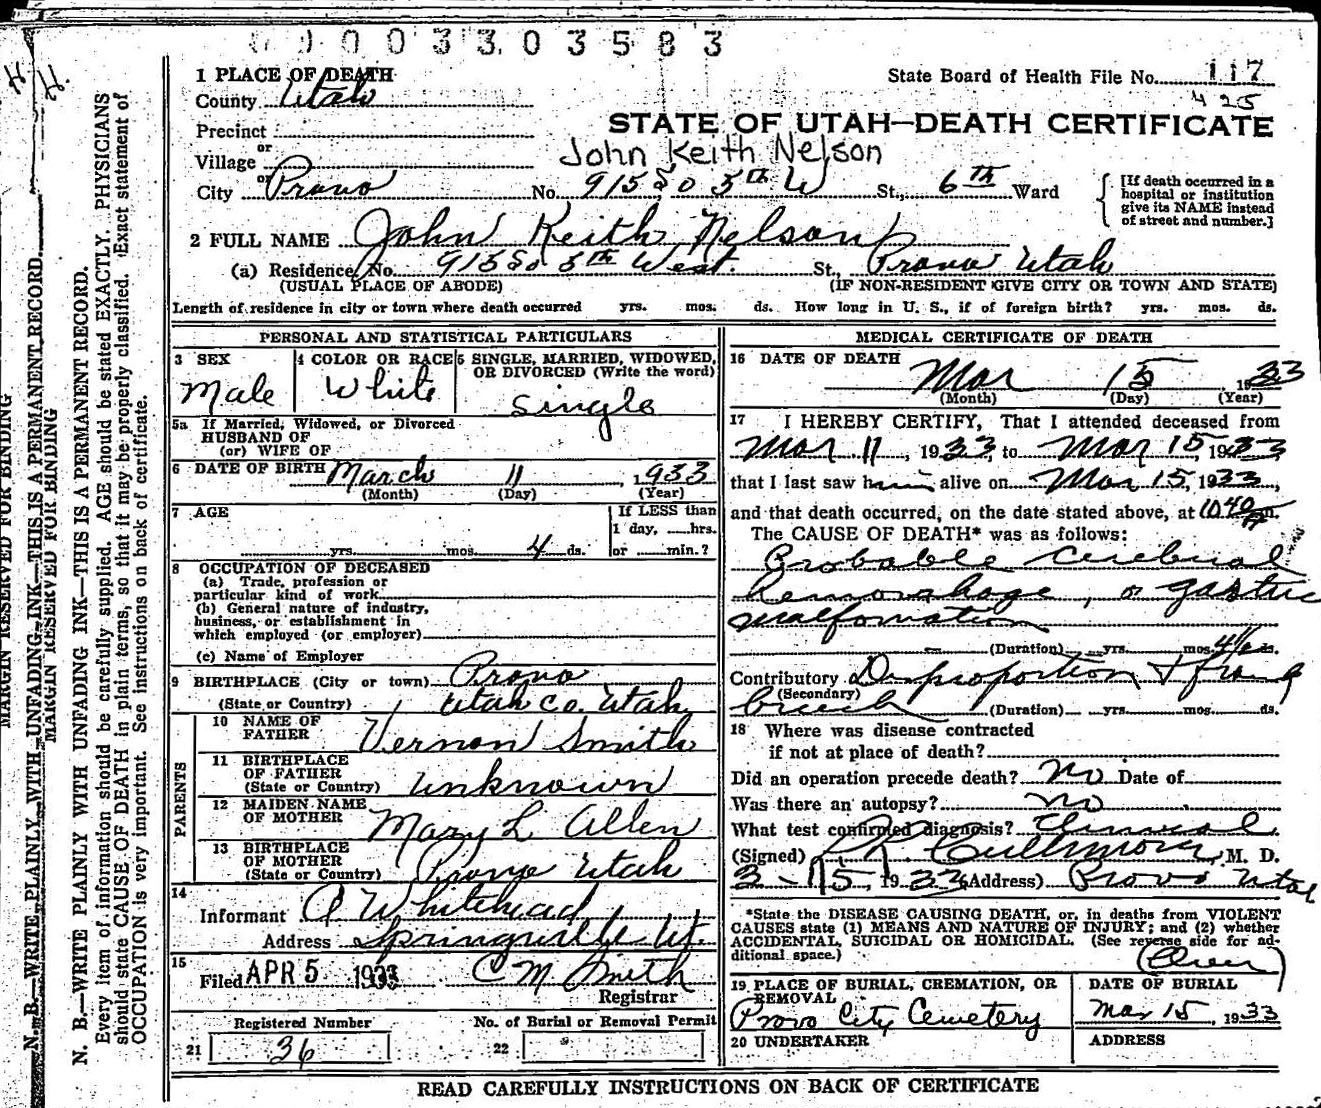 0 0 0 0 3 3 0 3 5 8 3
1 PLACE OF DEATH
State Board of Health File No. 117
425
County Utah
STATE OF UTAH—DEATH CERTIFICATE
Precinct
or
Village
John Keith Nelson
or
City Provo No. 915 So 5th W St., 6th Ward
[If death occurred in a hospital or institution give its NAME instead of street and number.]
2 FULL NAME John Keith Nelson
(a) Residence, No. 915 So 5th West. St., Provo Utah
(USUAL PLACE OF ABODE) (IF NON-RESIDENT GIVE CITY OR TOWN AND STATE)
Length of residence in city or town where death occurred yrs. mos. ds. How long in U. S., if of foreign birth? yrs. mos. ds.
PERSONAL AND STATISTICAL PARTICULARS
3 SEX
Male
4 COLOR OR RACE
White
5 SINGLE, MARRIED, WIDOWED,
OR DIVORCED (Write the word)
Single
5a If Married, Widowed, or Divorced
HUSBAND OF
(or) WIFE OF
6 DATE OF BIRTH March 11, 1933
(Month) (Day) (Year)
7 AGE
yrs. mos. 4 ds.
If LESS than
1 day, hrs.
or min.?
8 OCCUPATION OF DECEASED
(a) Trade, profession or
particular kind of work
(b) General nature of industry,
business, or establishment in
which employed (or employer)
(c) Name of Employer
9 BIRTHPLACE (City or town) Provo
(State or Country) Utah Co. Utah
PARENTS
10 NAME OF
FATHER Vernon Smith
11 BIRTHPLACE
OF FATHER
(State or Country) unknown
12 MAIDEN NAME
OF MOTHER Mary L. Allen
13 BIRTHPLACE
OF MOTHER
(State or Country) Provo Utah
14
Informant A Whitehead
Address Springville Ut.
15
Filed APR 5 1933 C M Smith
Registrar
Registered Number No. of Burial or Removal Permit
21 36 22
MEDICAL CERTIFICATE OF DEATH
16 DATE OF DEATH
Mar 15, 1933
(Month) (Day) (Year)
17 I HEREBY CERTIFY, That I attended deceased from
Mar 11, 1933, to Mar 15, 1933,
that I last saw him alive on Mar 15, 1933,
and that death occurred, on the date stated above, at 1040 A m.
The CAUSE OF DEATH* was as follows:
Probable Cerebral
hemorrhage, or gastric
malformation
(Duration) yrs. mos. 4 ds.
Contributory Disproportion & frank
(Secondary)
breech (Duration) yrs. mos. ds.
18 Where was disease contracted
if not at place of death?
Did an operation precede death? No Date of
Was there an autopsy? no
What test confirmed diagnosis? Clinical
(Signed) Cullimore, M. D.
3-15, 1933 (Address) Provo Utah
*State the DISEASE CAUSING DEATH, or, in deaths from VIOLENT
CAUSES state (1) MEANS AND NATURE OF INJURY; and (2) whether
ACCIDENTAL, SUICIDAL OR HOMICIDAL. (See reverse side for ad-
ditional space.) (Over)
19 PLACE OF BURIAL, CREMATION, OR
REMOVAL
Provo City Cemetery
DATE OF BURIAL
Mar 15, 1933
20 UNDERTAKER ADDRESS
READ CAREFULLY INSTRUCTIONS ON BACK OF CERTIFICATE
MARGIN RESERVED FOR BINDING
N. B.—WRITE PLAINLY, WITH UNFADING INK—THIS IS A PERMANENT RECORD.
MARGIN RESERVED FOR BINDING
N. B.—WRITE PLAINLY WITH UNFADING INK—THIS IS A PERMANENT RECORD.
Every item of information should be carefully supplied. AGE should be stated EXACTLY. PHYSICIANS
should state CAUSE OF DEATH in plain terms, so that it may be properly classified. Exact statement of
OCCUPATION is very important. See instructions on back of certificate.